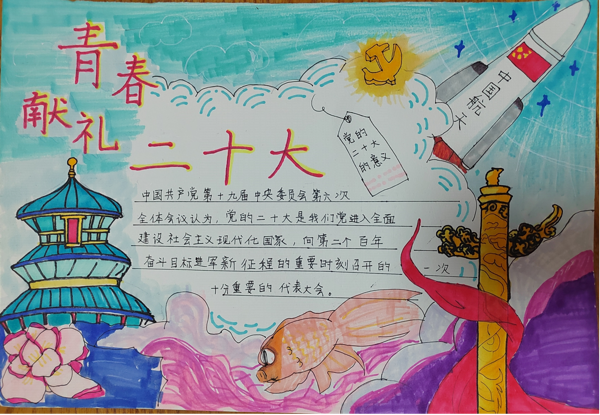 青春
献礼
二十大
中国航天
党的
二十大
的意义
中国共产党第十九届中央委员会第六次
全体会议认为，党的二十大是我们党进入全面
建设社会主义现代化国家，向第二个百年
奋斗目标进军新征程的重要时刻召开的一次
十分重要的代表大会。